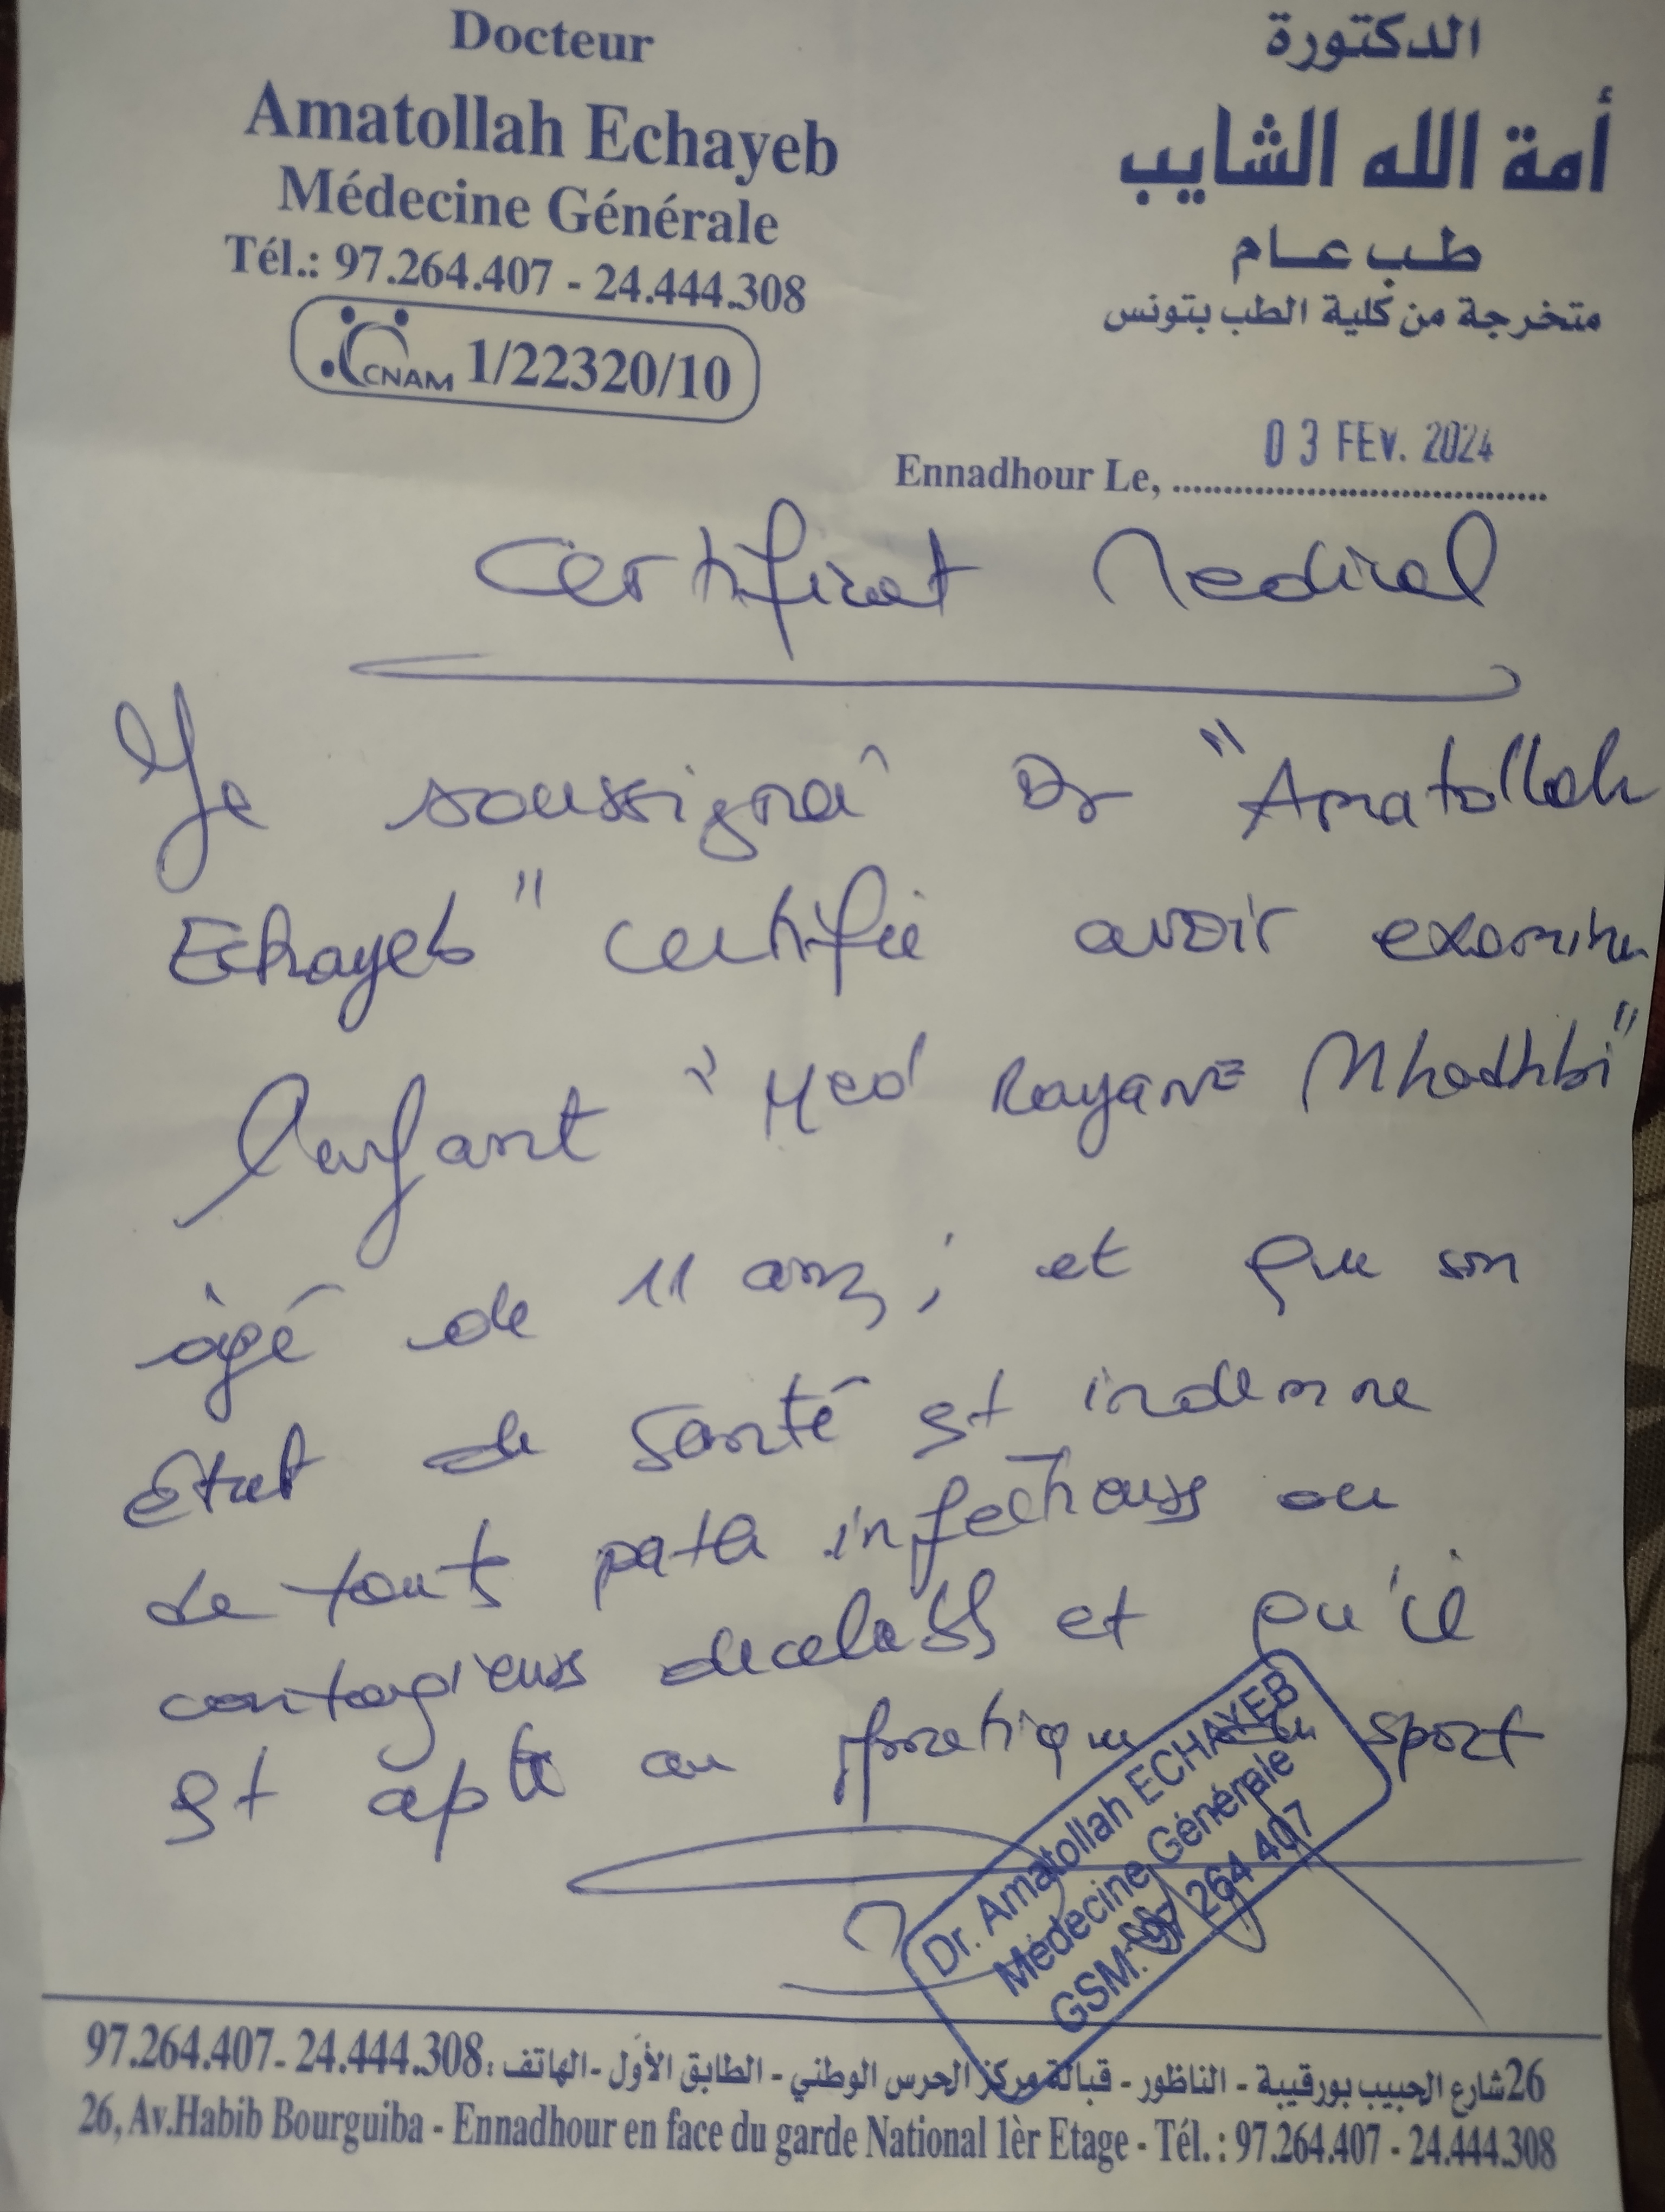 Docteur
Amatollah Echayeb
Médecine Générale
Tél.: 97.264.407 - 24.444.308
CNAM 1/22320/10
الدكتورة
أمة الله الشايب
طب عام
متخرجة من كلية الطب بتونس
Ennadhour Le, 03 FEV. 2024
Certificat Medical
Je soussigné Dr "Amatollah
Echayeb" certifie avoir examiner
l'enfant "Med Rayane Mhadhbi"
âgé de 11 ans, et que son
état de santé est indemne
de touts path infectieuses ou
contagieuses decelables et qu'il
est apte au pratique du sport
Dr. Amatollah ECHAYEB
Médecine Générale
GSM: 97 264 407
26 شارع الحبيب بورقيبة - الناظور - قبالة مركز الحرس الوطني - الطابق الأول - الهاتف : 97.264.407- 24.444.308
26, Av.Habib Bourguiba - Ennadhour en face du garde National 1èr Etage - Tél. : 97.264.407 - 24.444.308